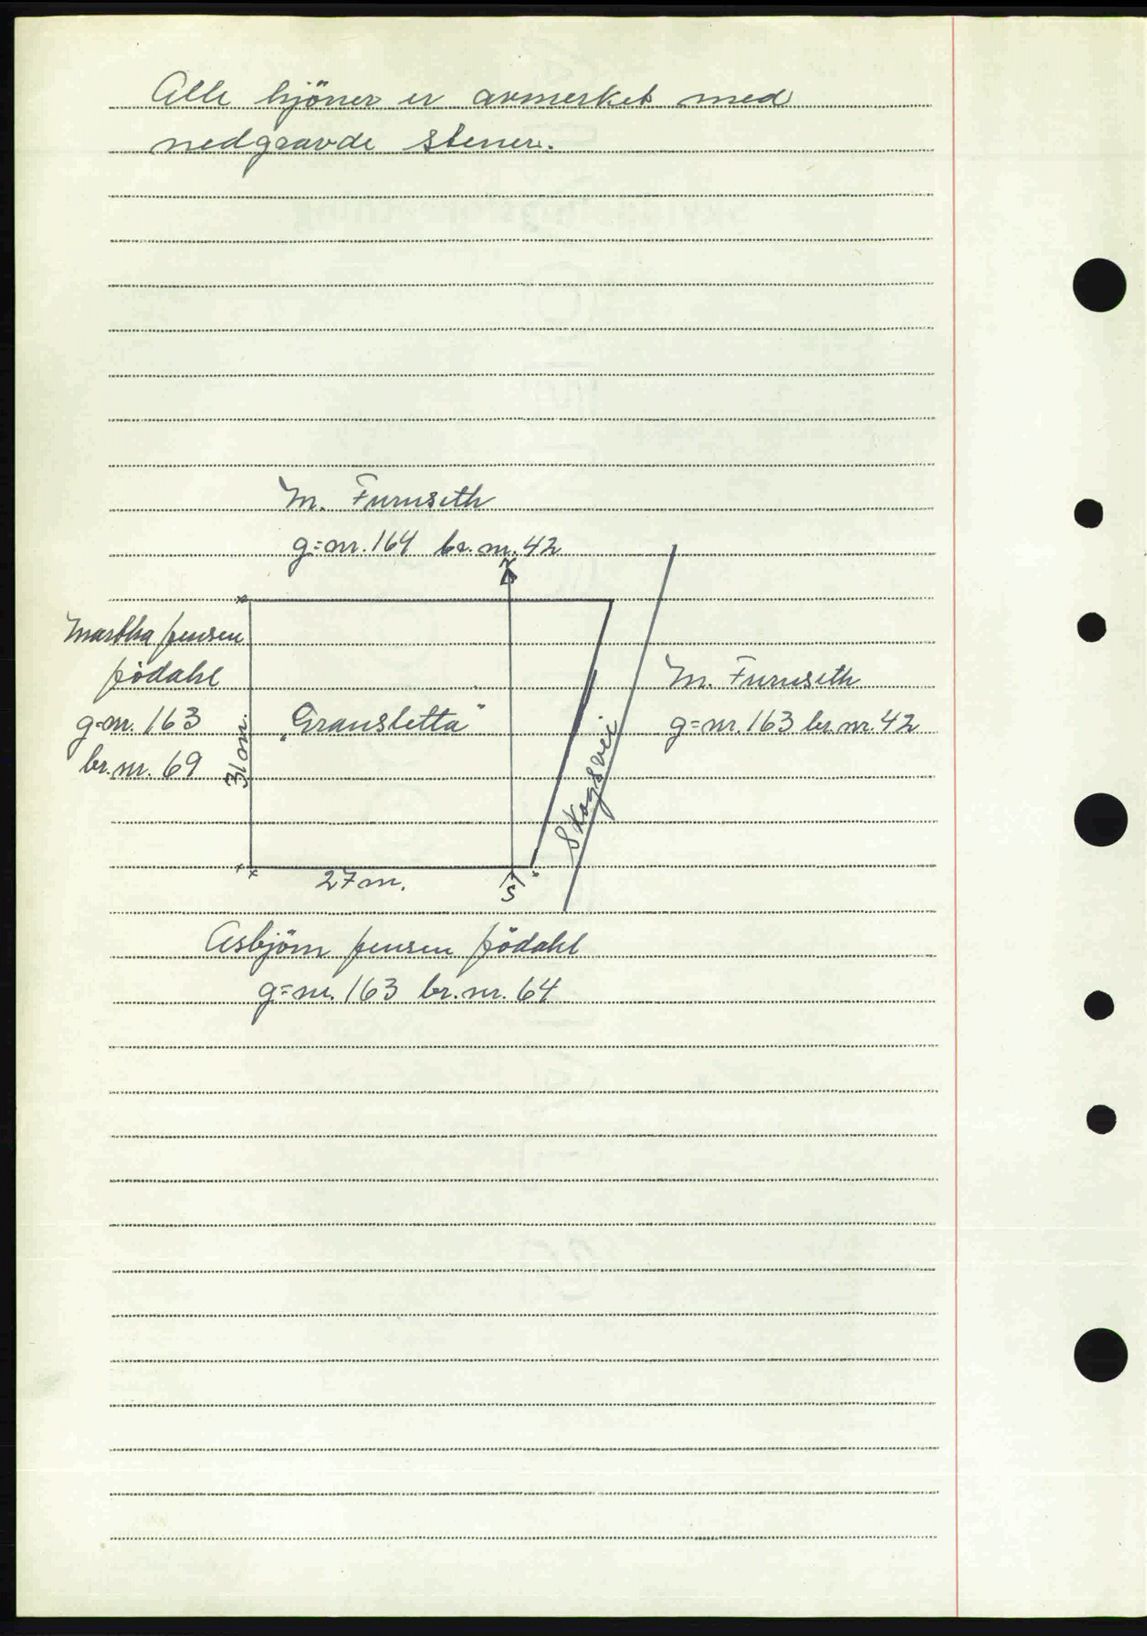 Alle hjöner er avmerket med
nedgravde stener.
M. Furuseth
g=nr. 164 br. nr. 42
N
Martha Jensen
Jödahl
g=nr. 163
br. nr. 69
31 m.
"Gransletta"
Skogsvei
M. Furuseth
g=nr. 163 br. nr. 42
27 m.
S
Asbjörn Jensen Jödahl
g=nr. 163 br. nr. 64